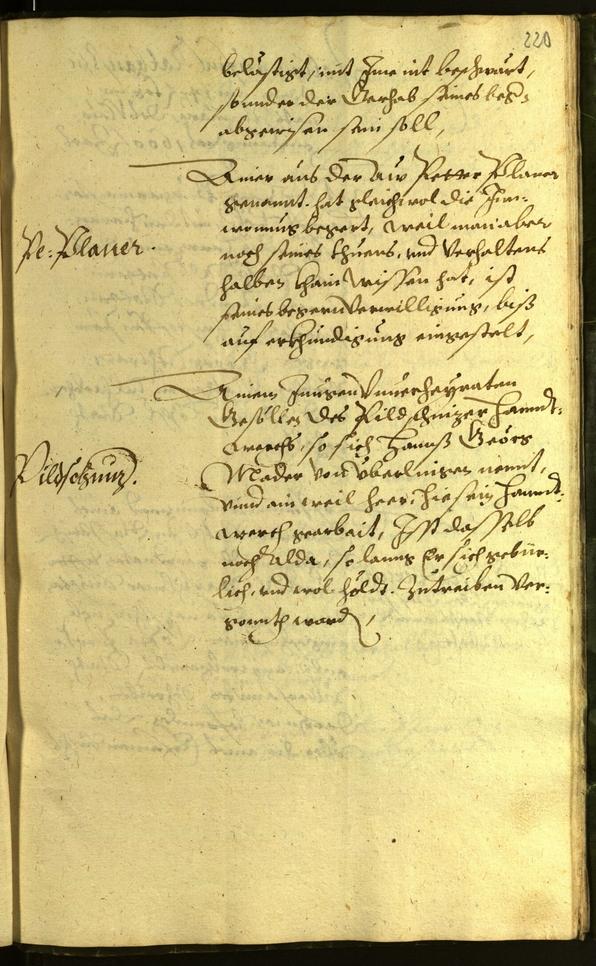 220
belästigt, mit Ime nit beschwärt,
sonnder der Gerhab seines beg=
abgewisen sein soll,
Ainer aus der Aw Petter Planer
genant. hat gleichwol die Inn=
wonung begert, weil man aber
noch seines thuens, und verhaltens
halben khain wissen hat, ist
seines begern verwilligung, biß
auf erkhündigung eingestelt,
Pe: Planer.
Ainem Jungen Unverheyraten
Gesöllen des Pildschnizer Hanndt=
werchs, so sich Hannß Geörg
Mader von Überlingen nennt,
unnd ain weil heer, hie sein Hanndt=
werch gearbait, Ist dasselb
noch alda, so lanng Er sich gebür=
lich, und wol höldt. Zutreiben ver=
gonnth word,